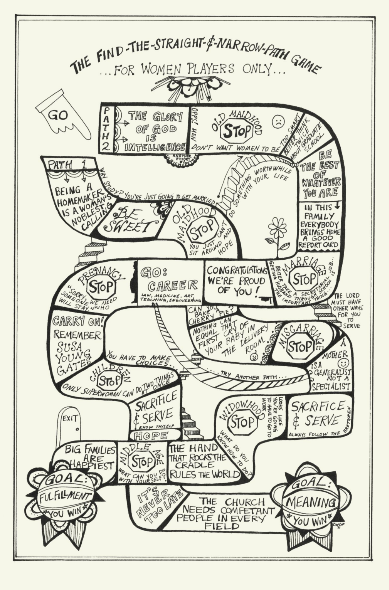 THE FIND-THE-STRAIGHT-&-NARROW-PATH GAME
...FOR WOMEN PLAYERS ONLY...
GO
PATH 2
THE GLORY
OF GOD
IS
INTELLIGENCE
OLD MAIDHOOD
STOP
DON'T WANT WOMEN TO BE
BE
THE BEST
OF
WHATEVER
YOU ARE
IN THIS
FAMILY
EVERYBODY
BRINGS HOME
A GOOD
REPORT CARD
PATH 1
BEING A
HOMEMAKER
IS A WOMAN'S
NOBLEST
CALLING
YOU'RE JUST GOING TO GET MARRIED
BE
SWEET
OLD
MAIDHOOD
STOP
YOU JUST
SIT AROUND
HOPE
WORTHWHILE
WITH YOUR LIFE
PREGNANCY
STOP
GO:
CAREER
LAW, MEDICINE, ART,
TEACHING, ENGINEERING
CONGRATULATIONS
WE'RE PROUD
OF YOU!
MARRIAGE
STOP
THE LORD
MUST HAVE
OTHER WAYS
FOR YOU
TO
SERVE
CARRY ON!
REMEMBER
SUSA
YOUNG
GATES
YOU HAVE TO MAKE
CHOICES
NOTHING CAN
EQUAL THAT OF A
FIRST
BABY'S CRY IN
THE DELIVERY
ROOM
MISCARRIAGE
STOP
A
MOTHER
IS
A GENERALIST
NOT A
SPECIALIST
CHILDREN
STOP
ONLY SUPERWOMAN CAN DO TWO THINGS
TRY ANOTHER PATH
SACRIFICE
& SERVE
HOPE
WIDOWHOOD
STOP
SACRIFICE
& SERVE
ALWAYS FOLLOW THE
EXIT
BIG FAMILIES
ARE
HAPPIEST
MIDDLE AGE
STOP
THE HAND
THAT ROCKS THE
CRADLE
RULES THE WORLD
GOAL:
FULFILLMENT
YOU WIN
IT'S
NEVER
TOO LATE
THE CHURCH
NEEDS COMPETANT
PEOPLE IN EVERY
FIELD
GOAL:
MEANING
YOU WIN